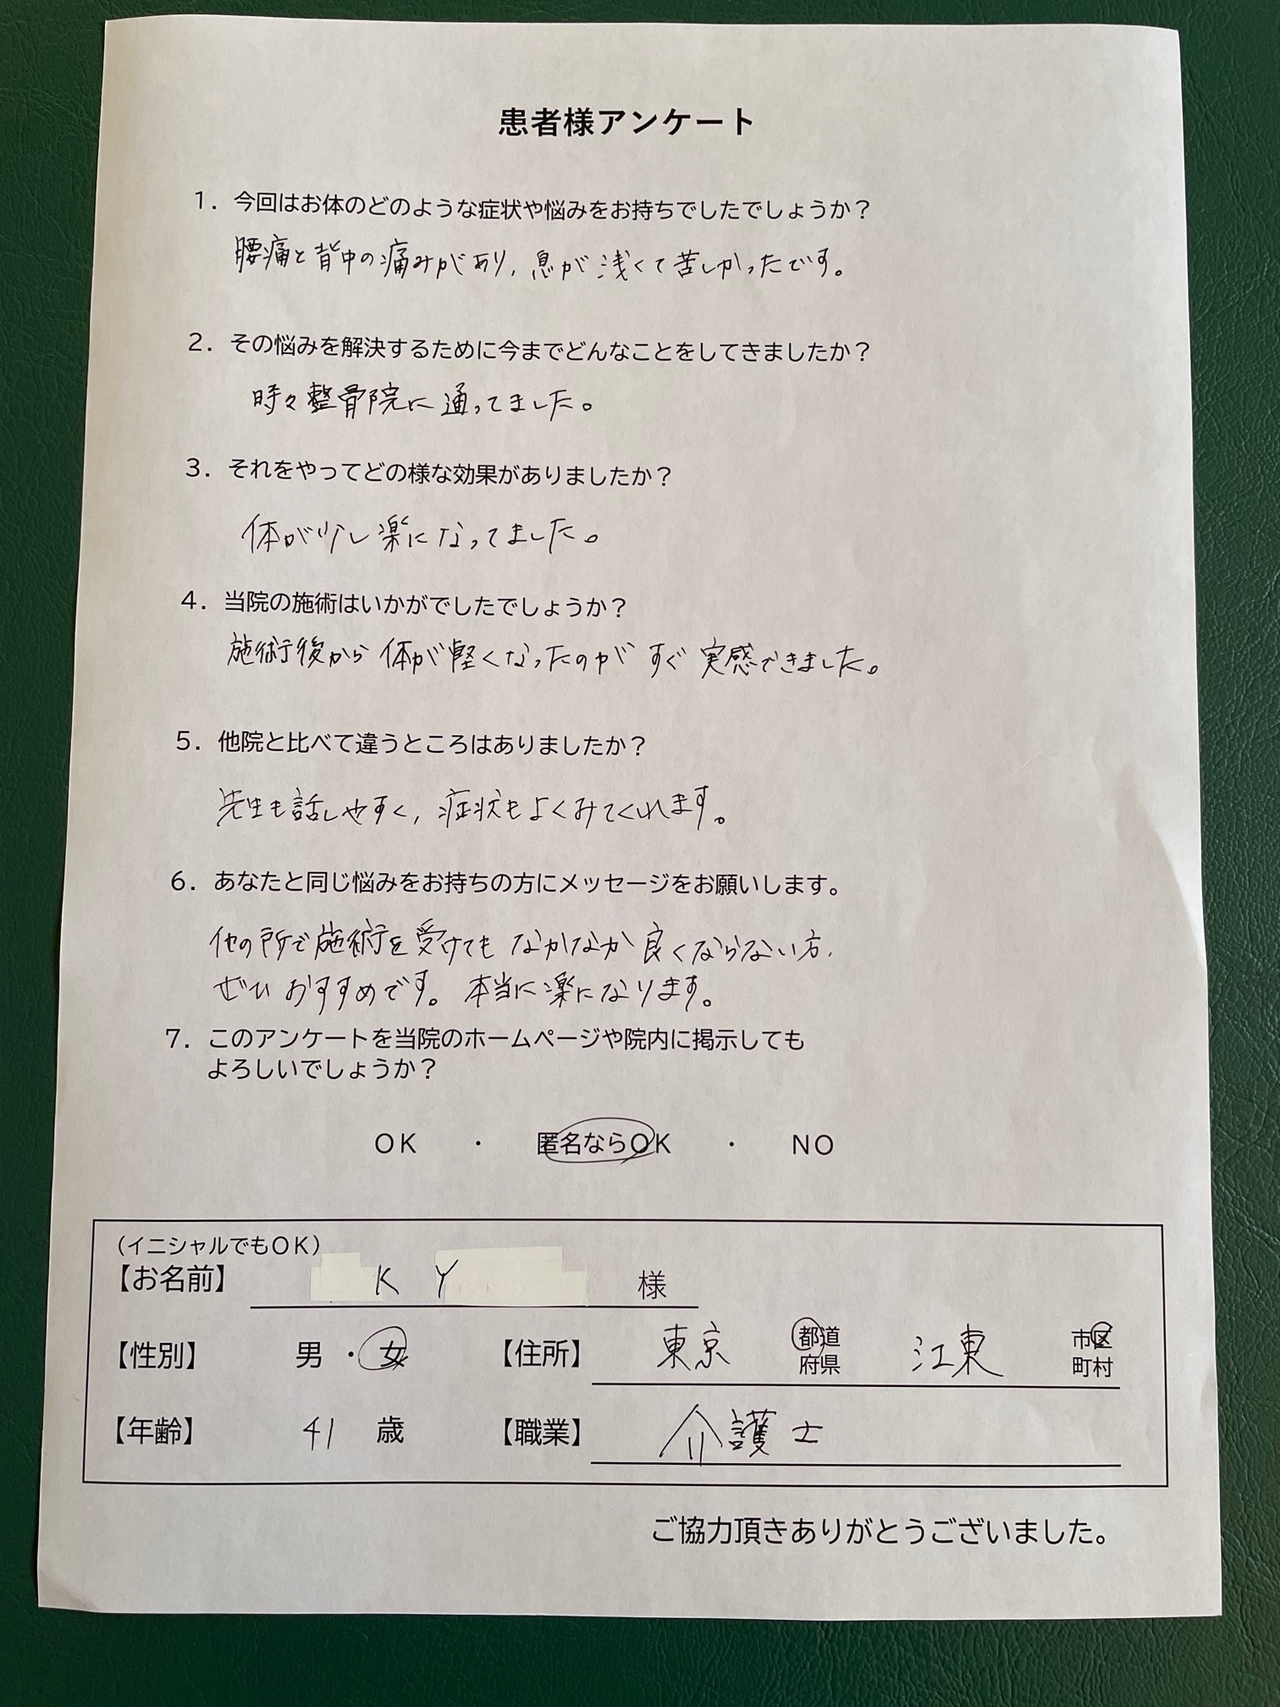 患者様アンケート
1. 今回はお体のどのような症状や悩みをお持ちでしたでしょうか？
腰痛と背中の痛みがあり、息が浅くて苦しかったです。
2. その悩みを解決するために今までどんなことをしてきましたか？
時々整骨院に通ってました。
3. それをやってどの様な効果がありましたか？
体が少し楽になってました。
4. 当院の施術はいかがでしたでしょうか？
施術後から体が軽くなったのがすぐ実感できました。
5. 他院と比べて違うところはありましたか？
先生も話しやすく、症状もよくみてくれます。
6. あなたと同じ悩みをお持ちの方にメッセージをお願いします。
他の所で施術を受けてもなかなか良くならない方、
ぜひおすすめです。本当に楽になります。
7. このアンケートを当院のホームページや院内に掲示しても
よろしいでしょうか？
OK ・ 匿名ならOK ・ NO
（イニシャルでもOK）
【お名前】 K Y 様
【性別】 男 ・ 女 【住所】 東京 都道府県 江東 市区町村
【年齢】 41 歳 【職業】 介護士
ご協力頂きありがとうございました。